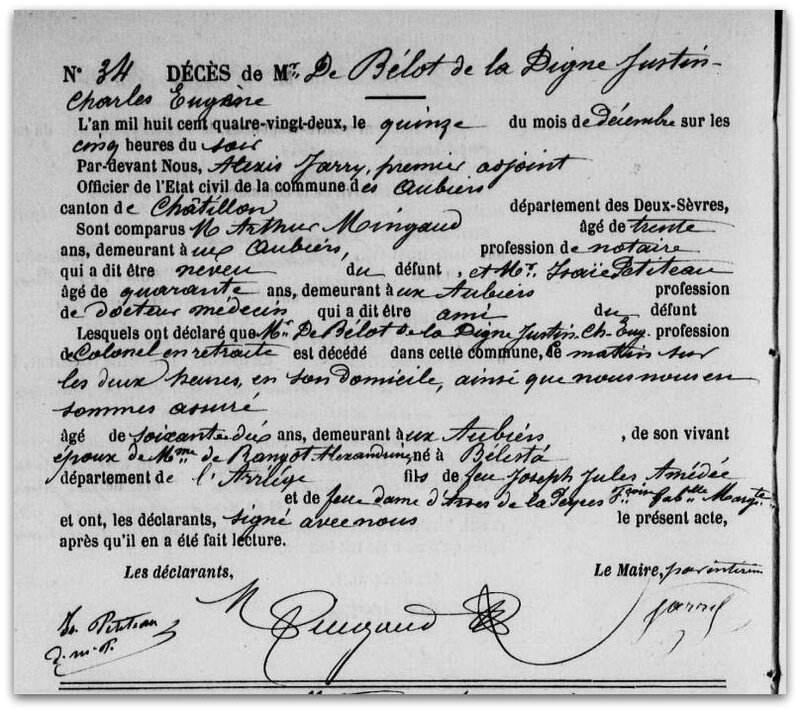 N° 34 DÉCÈS de Mr. De Bélot de la Digne Justin-
Charles Eugène
L'an mil huit cent quatre-vingt-deux, le quinze du mois de décembre sur les
cinq heures du soir
Par-devant Nous, Alexis Jarry, premier adjoint
Officier de l'Etat civil de la commune des Aubiers
canton de Châtillon département des Deux-Sèvres,
Sont comparus M Arthur Mingaud âgé de trente
ans, demeurant aux Aubiers, profession de notaire
qui a dit être neveu du défunt, et Mr. Isaïe Petiteau
âgé de quarante ans, demeurant aux Aubiers profession
de docteur médecin qui a dit être ami du défunt
Lesquels ont déclaré que Mr De Bélot de la Digne Justin Ch- Eug. profession
de Colonel en retraite est décédé dans cette commune, ce matin sur
les deux heures, en son domicile, ainsi que nous nous en
sommes assuré
âgé de soixante dix ans, demeurant aux Aubiers, de son vivant
époux de Mme de Rangot né à Bélesta
département de l'Arriége fils de feu Joseph Jules Amédée
et de feue dame d'Asses de la Peyres Fcoise Gabelle Margte
et ont, les déclarants, signé avec nous le présent acte,
après qu'il en a été fait lecture.
Les déclarants, Le Maire, par interim
Is. Petiteau M Mingaud Jarry
d. m. P.